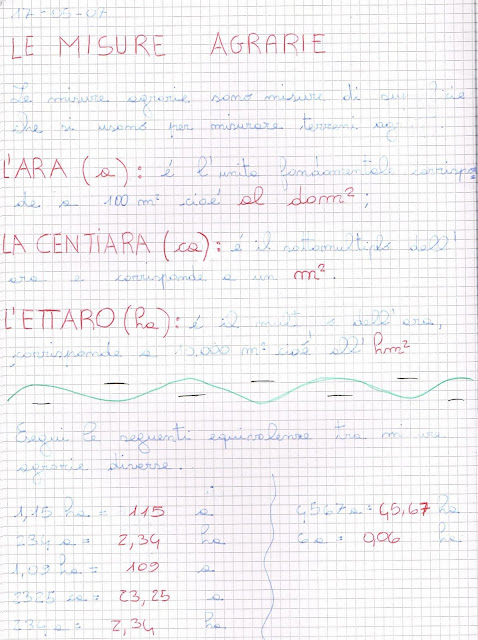 17-05-07
LE MISURE AGRARIE
Le misure agrarie sono misure di
che si usano per misurare terreni
L'ARA (a): é l'unità fondamentale corrispo
de a 100 m² cioé al dam²;
LA CENTIARA (ca): é il sottomultiplo dell'
ara e corrisponde a un m².
L'ETTARO (ha): é il dell'ara,
corrisponde a 10.000 m² cioé all'hm²
Esegui le seguenti equivalenze tra misure
agrarie diverse.
1,15 ha = 115 a
234 a = 2,34 ha
1,09 ha = 109 a
2325 ca = 23,25 a
234 a = 2,34 ha
4567 a = 45,67 ha
6 a = 0,06 ha